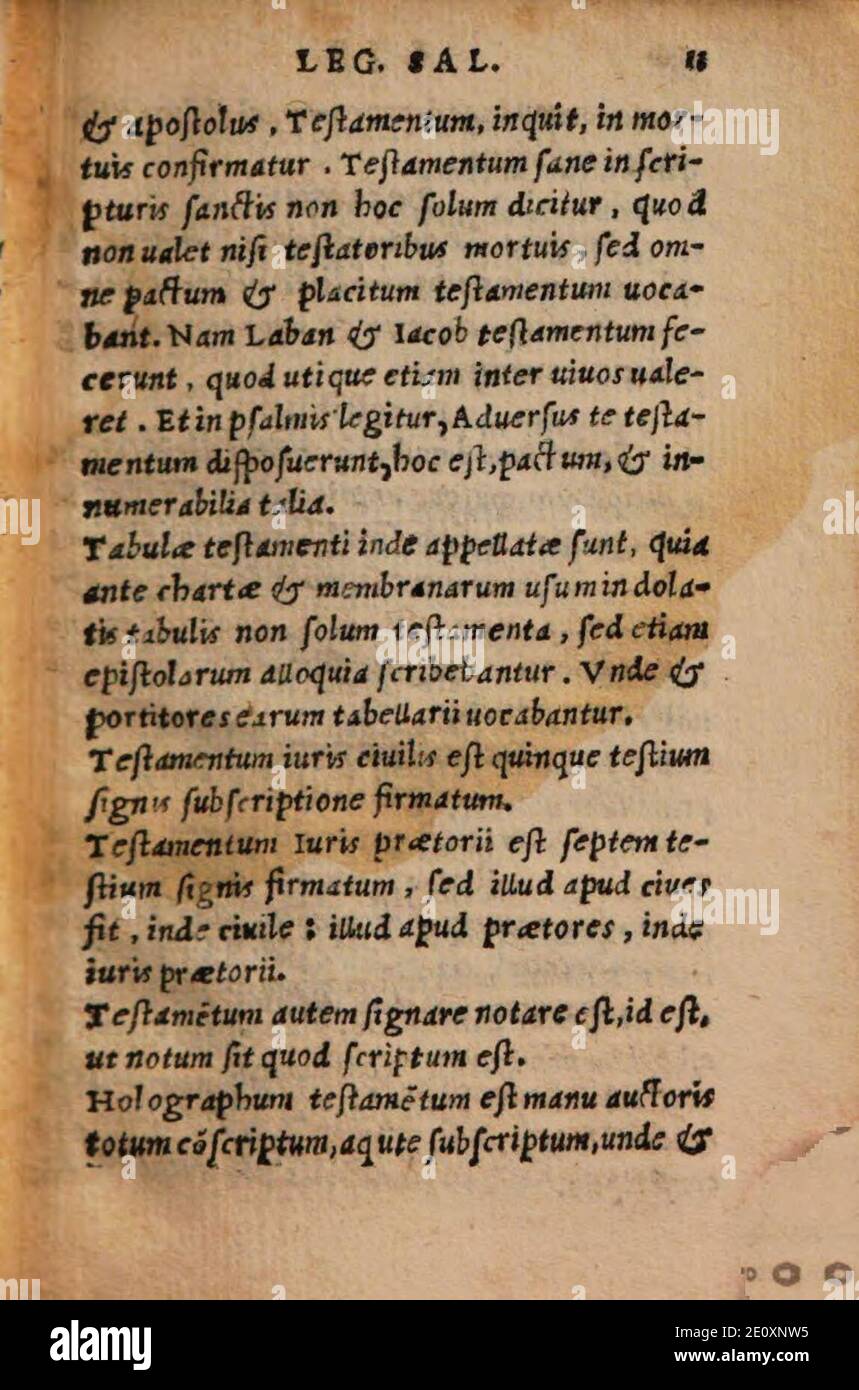 LEG. SAL. 11
& apostolus, Testamentum, inquit, in mor-
tuis confirmatur. Testamentum sane in scri-
pturis sanctis non hoc solum dicitur, quod
non ualet nisi testatoribus mortuis, sed om-
ne pactum & placitum testamentum uoca-
bant. Nam Laban & Iacob testamentum fe-
cerunt, quod utique etiam inter uiuos uale-
ret. Et in psalmis legitur, Aduersus te testa-
mentum disposuerunt, hoc est, pactum, & in-
numerabilia talia.
Tabulæ testamenti inde appellatæ sunt, quia
ante chartæ & membranarum usum in dola-
tis tabulis non solum testamenta, sed etiam
epistolarum alloquia scribebantur. Vnde &
portitores earum tabellarii uocabantur.
Testamentum iuris ciuilis est quinque testium
signis subscriptione firmatum.
Testamentum Iuris prætorii est septem te-
stium signis firmatum, sed illud apud ciues
fit, inde ciuile: illud apud prætores, inde
iuris prætorii.
Testamētum autem signare notare est, id est,
ut notum sit quod scriptum est.
Holographum testamētum est manu auctoris
totum cōscriptum, aqute subscriptum, unde &
alamy
Image ID: 2E0XNW5
www.alamy.com